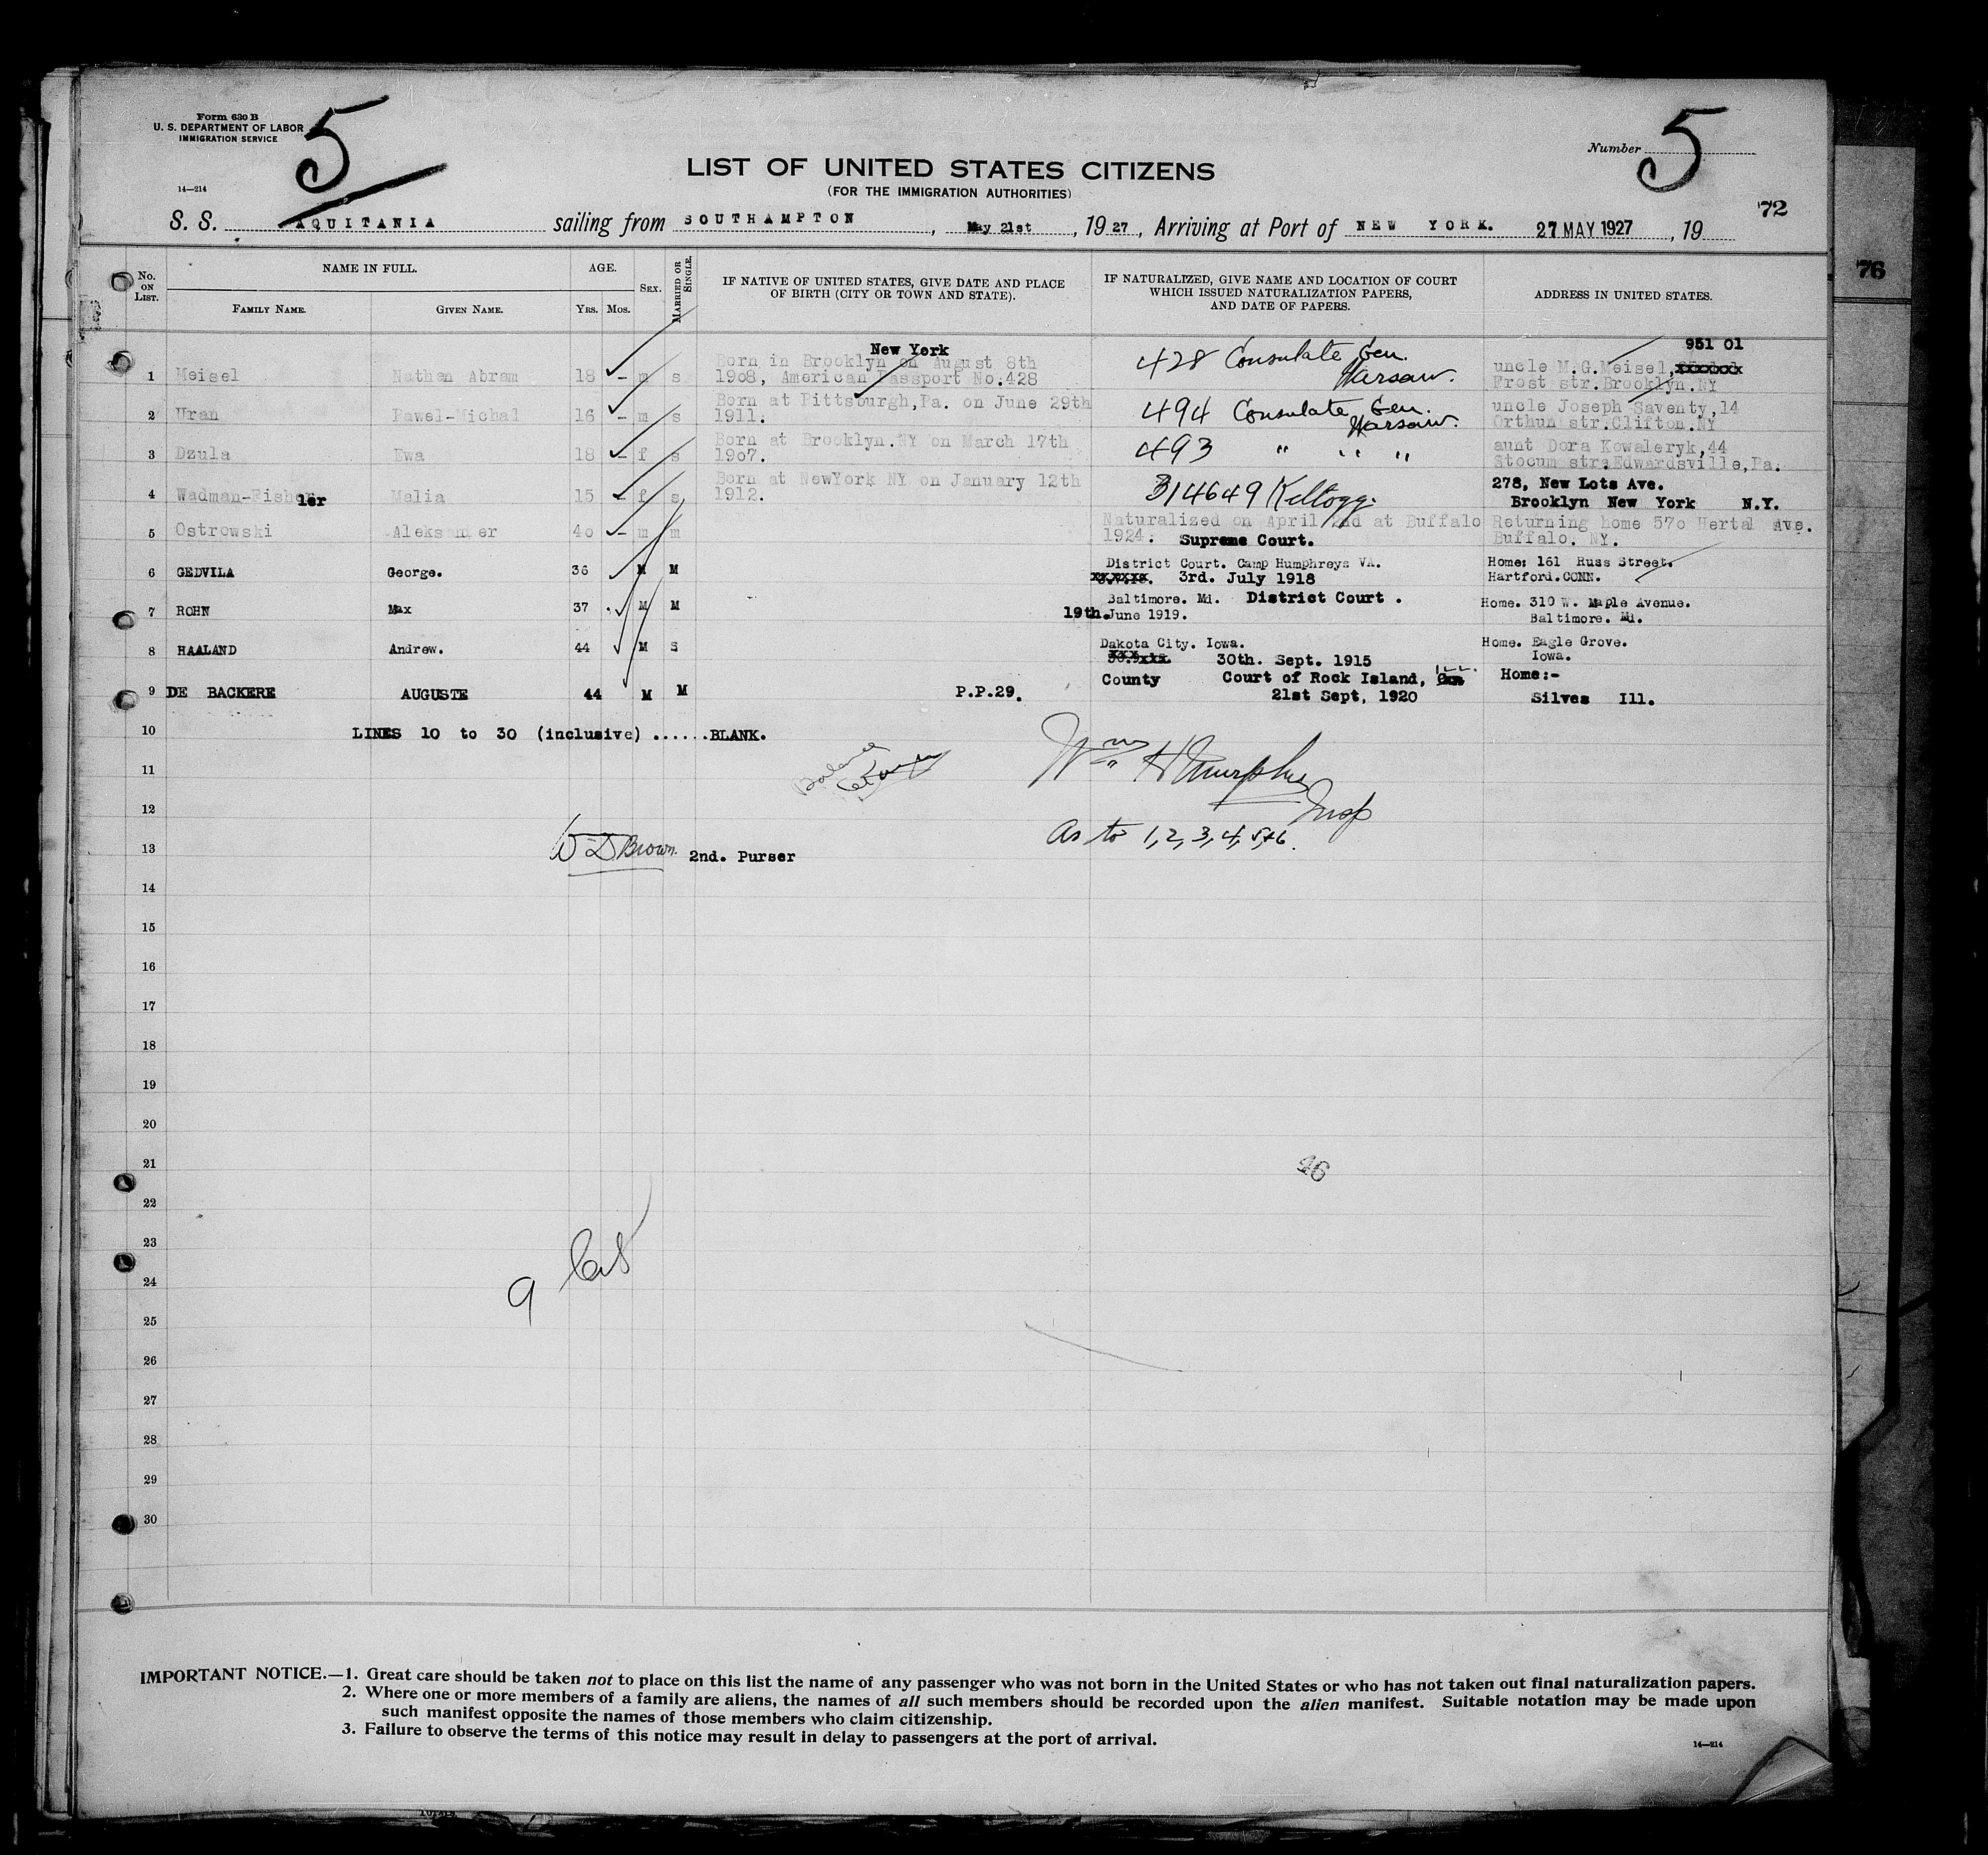 Form 630 B
U. S. DEPARTMENT OF LABOR
IMMIGRATION SERVICE
14—214
5
Number 5
LIST OF UNITED STATES CITIZENS
(FOR THE IMMIGRATION AUTHORITIES)
72
76
S. S. AQUITANIA sailing from SOUTHAMPTON, May 21st, 1927, Arriving at Port of NEW YORK. 27 MAY 1927, 19
No. ON LIST.
NAME IN FULL.
FAMILY NAME. GIVEN NAME.
AGE.
YRS. MOS.
SEX.
MARRIED OR SINGLE.
IF NATIVE OF UNITED STATES, GIVE DATE AND PLACE
OF BIRTH (CITY OR TOWN AND STATE).
IF NATURALIZED, GIVE NAME AND LOCATION OF COURT
WHICH ISSUED NATURALIZATION PAPERS,
AND DATE OF PAPERS.
ADDRESS IN UNITED STATES.
New York 951 01
Born in Brooklyn on August 8th 428 Consulate Gen. uncle M.G.Meisel,
1 Meisel Nathan Abram 18 - m s 1908, American Passport No.428 Warsaw. Frost str.Brooklyn.NY
Born at Pittsburgh,Pa. on June 29th 494 Consulate Gen. uncle Joseph Saventy,14
2 Uran Pawel-Michal 16 - m s 1911. Warsaw. Orthun str.Clifton.NY
Born at Brooklyn.NY on March 17th 493 " " " aunt Dora Kowaleryk,44
3 Dzula Ewa 18 - f s 1907. Stocum str.Edwardsville,Pa.
Born at NewYork NY on January 12th 278, New Lots Ave.
4 Wadman-Fishler Malia 15 - f s 1912. 314649 Kellogg. Brooklyn New York N.Y.
Naturalized on April 2nd at Buffalo Returning home 570 Hertal Ave.
5 Ostrowski Aleksander 40 - m m 1924. Supreme Court. Buffalo. NY.
6 GEDVILA George. 36 M M District Court. Camp Humphreys VA. Home: 161 Russ Street.
3rd. July 1918 Hartford.CONN.
7 ROHN Max 37 M M Baltimore. Md. District Court . Home. 310 W. Maple Avenue.
19th.June 1919. Baltimore. Md.
8 HAALAND Andrew. 44 M S Dakota City. Iowa. Home. Eagle Grove.
30th. Sept. 1915 Iowa.
County Court of Rock Island, Ill. Home:-
9 DE BACKERE AUGUSTE 44 M M P.P.29. 21st Sept, 1920 Silves Ill.
10 LINES 10 to 30 (inclusive) ......BLANK.
11 Wm H Murphy
12 Insp
As to 1, 2, 3, 4, 5 & 6.
13 W D Brown 2nd. Purser
14
15
16
17
18
19
20
21 46
22
23
24 9
25
26
27
28
29
30
IMPORTANT NOTICE.—1. Great care should be taken not to place on this list the name of any passenger who was not born in the United States or who has not taken out final naturalization papers.
2. Where one or more members of a family are aliens, the names of all such members should be recorded upon the alien manifest. Suitable notation may be made upon
such manifest opposite the names of those members who claim citizenship.
3. Failure to observe the terms of this notice may result in delay to passengers at the port of arrival.
14—214